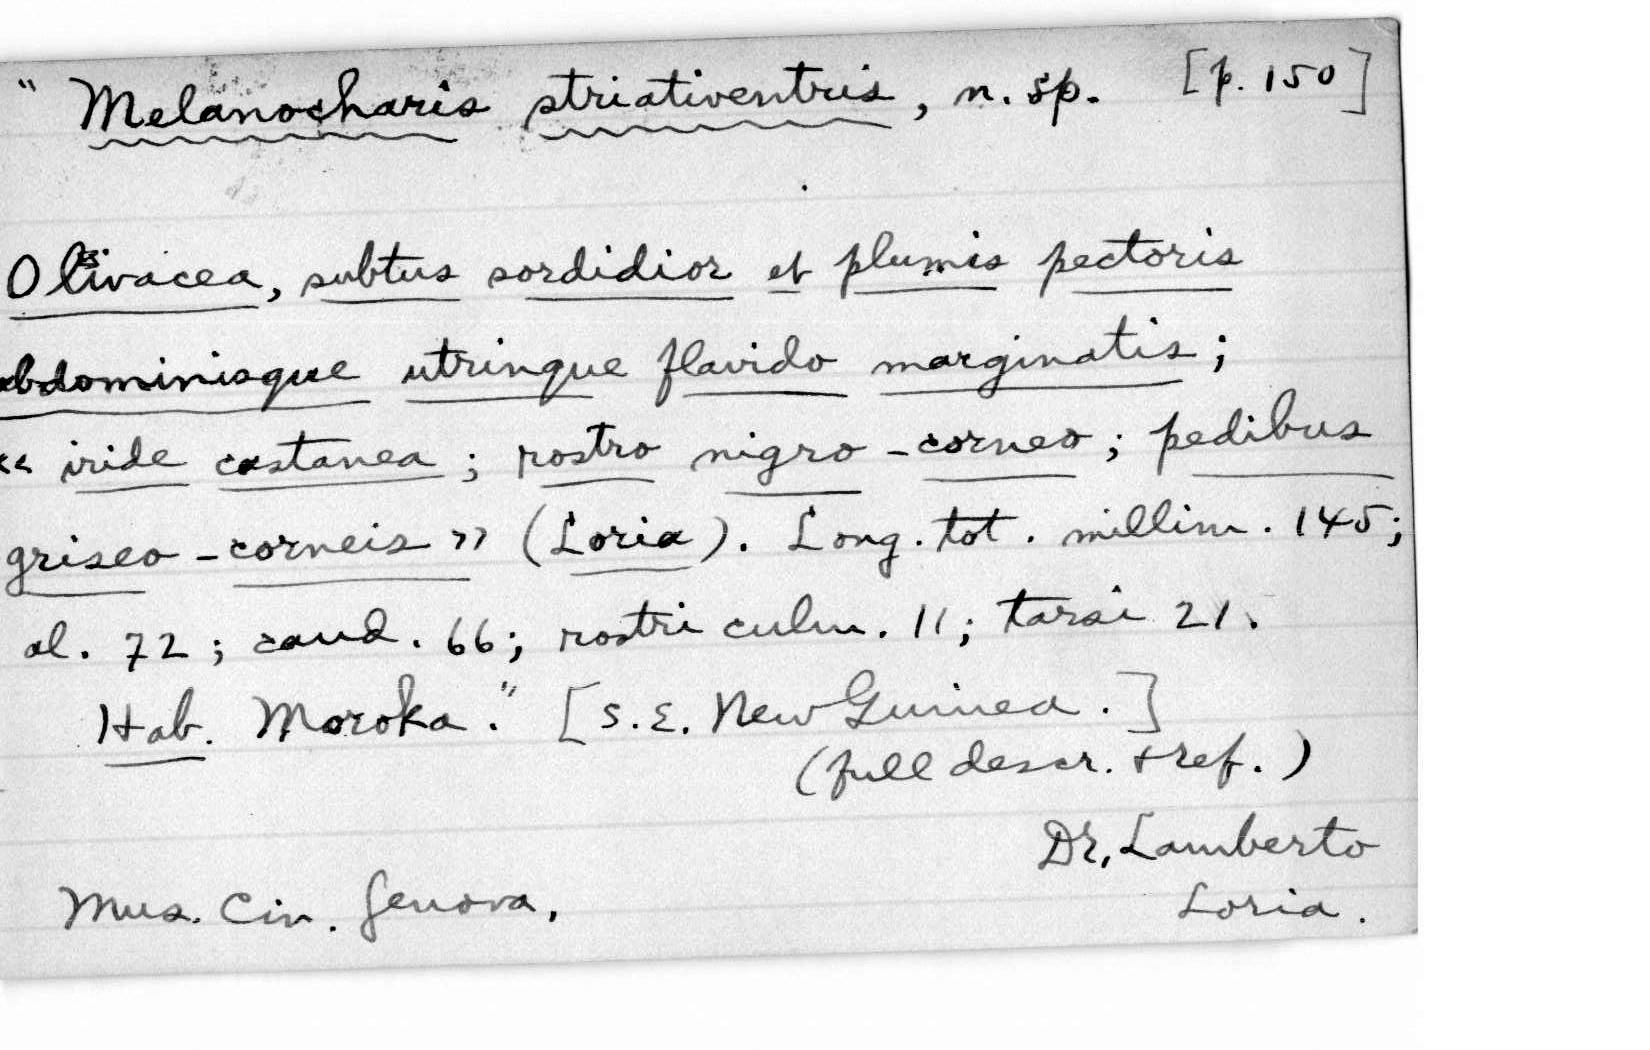 " Melanocharis striativentris, n. sp. [p. 150]
Olivacea, subtus sordidior et plumis pectoris
abdominisque utrinque flavido marginatis;
« iride castanea; rostro nigro-corneo; pedibus
griseo-corneis » (Loria). Long. tot. millim. 145;
al. 72; caud. 66; rostri culm. 11; tarsi 21.
Hab. Moroka." [S.E. New Guinea.]
(full descr. + ref.)
Dr. Lamberto
Mus. Civ. Genova. Loria.